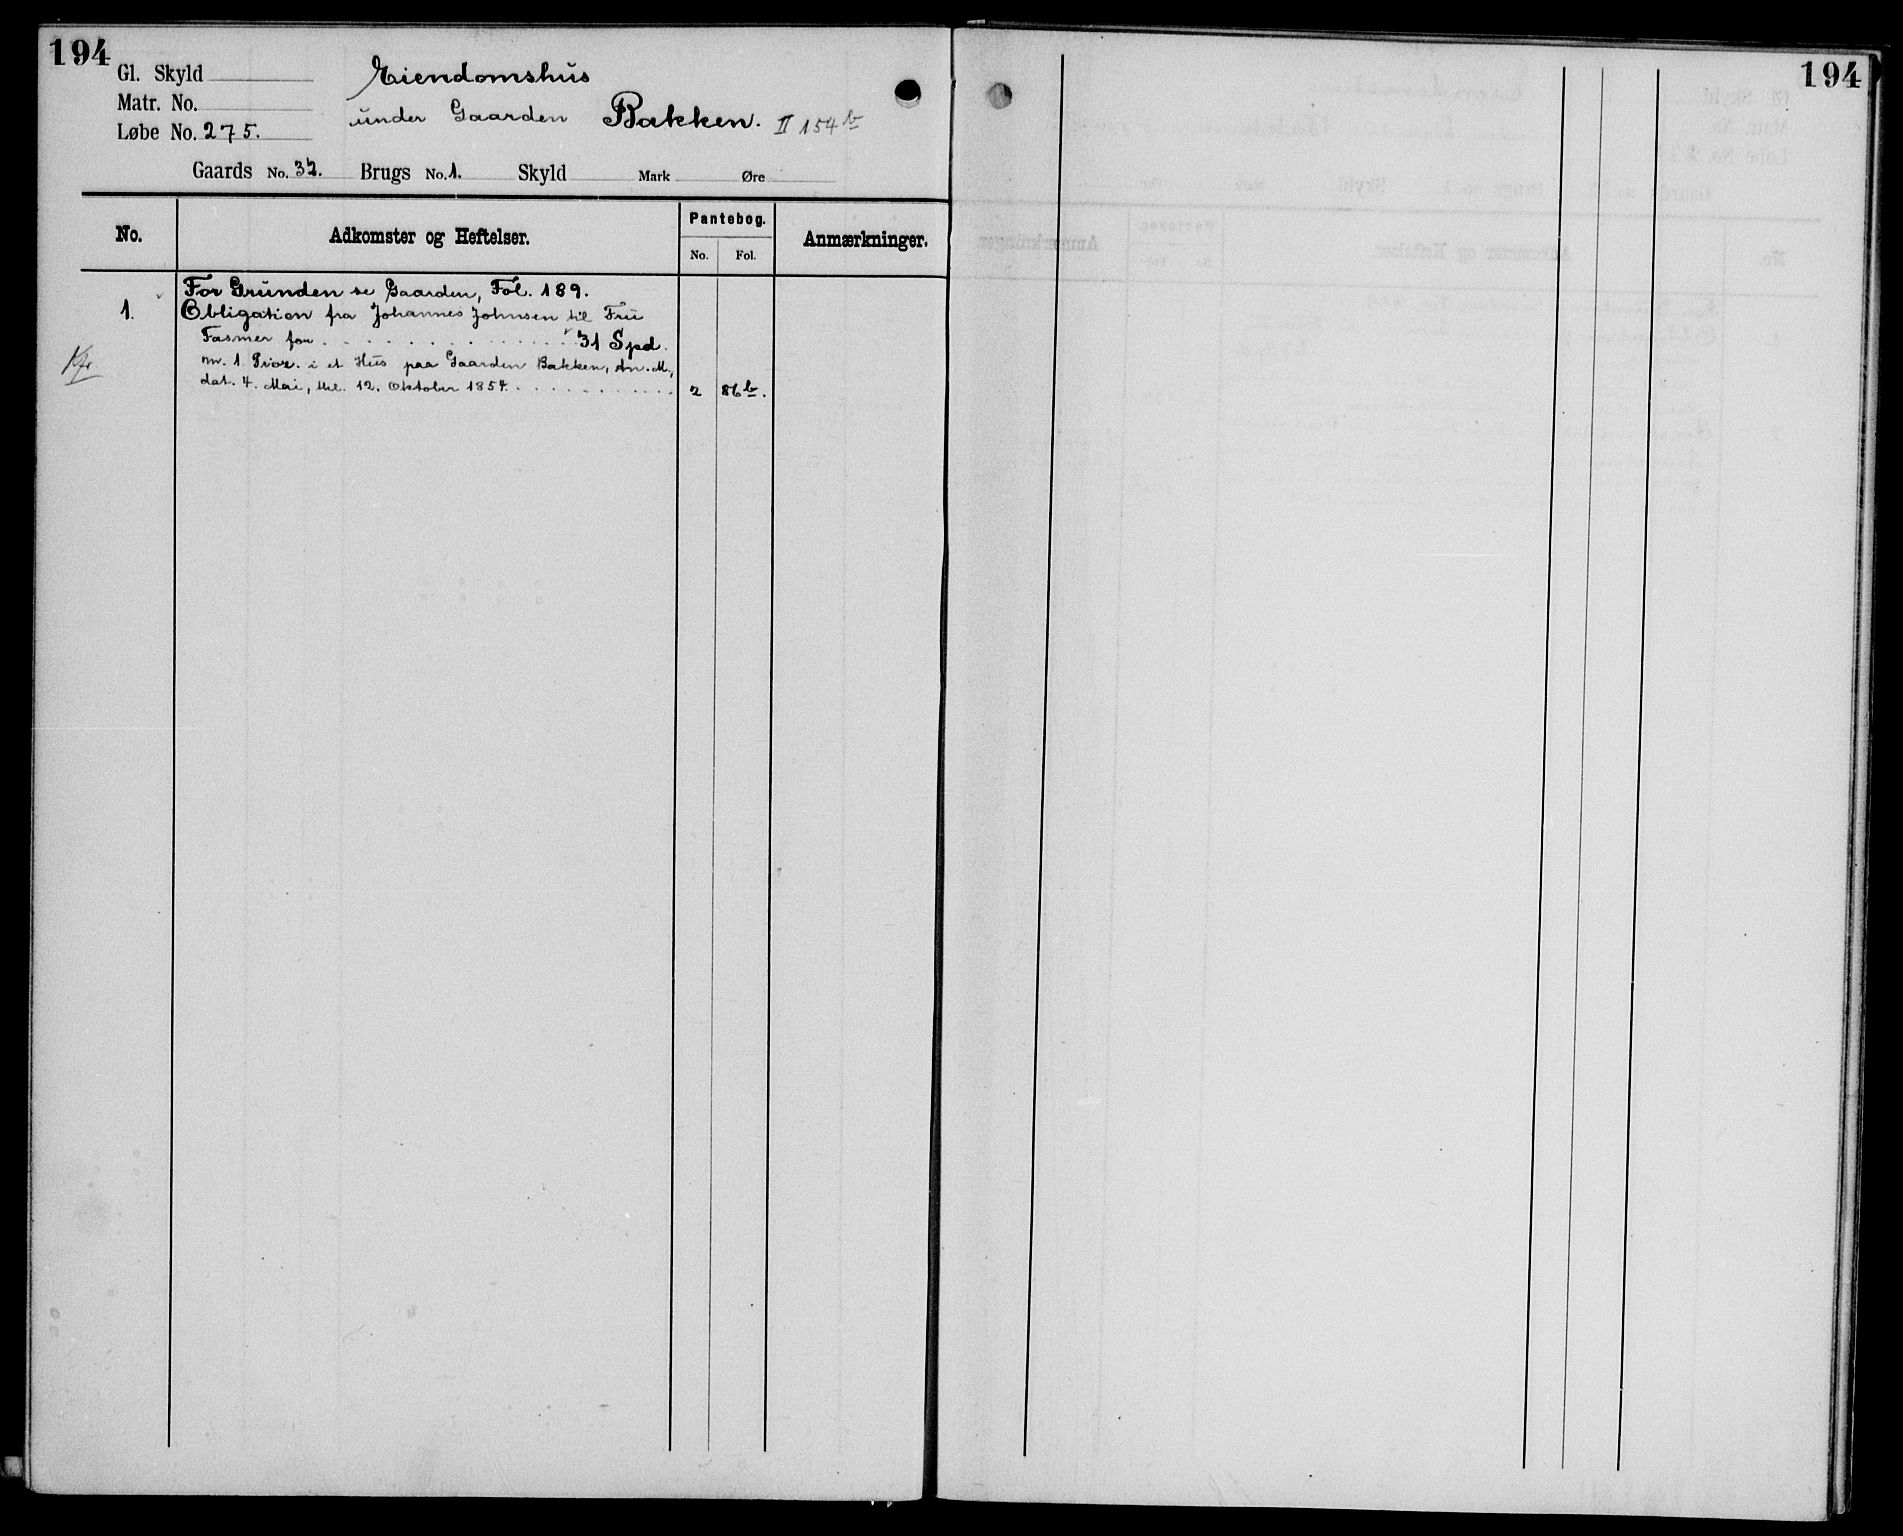 194
Gl. Skyld
Matr. No.
Løbe No. 275.
Eiendomshus
under Gaarden Bakken. II 154 b
Gaards No. 32. Brugs No. 1. Skyld Mark Øre
No. Adkomster og Heftelser. Pantebog. Anmærkninger.
No. Fol.
For Grunden se Gaarden, Fol. 189.
1. Obligation fra Johannes Johnsen til Fru
Fasmer for . . . . . . . . . . . . . . 31 Spd.
m. 1 Prior. i et Hus paa Gaarden Bakken, An. M.,
dat. 4. Mai, thl. 12. Oktober 1854. . . . . . . . . . . . 2 86b.
194